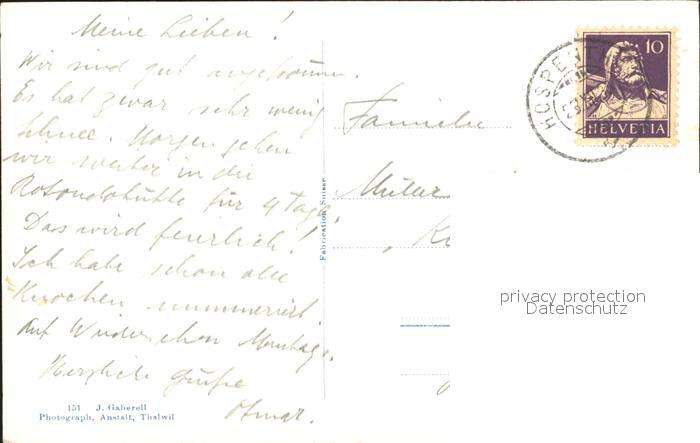 Meine Lieben!
Wir sind gut angekommen.
Es hat zwar sehr wenig
Schnee. Morgen gehen
wir weiter in die
Rotondohütte für 4 Tage.
Das wird feierlich!
Ich habe schon alle
Knochen nummeriert.
Auf Wiedersehen Montags.
Herzliche Grüsse
Otmar.
151 J. Gaberell
Photograph. Anstalt, Thalwil
Fabrication Suisse
Familie
Müller
HOSPENT
10
HELVETIA
privacy protection
Datenschutz